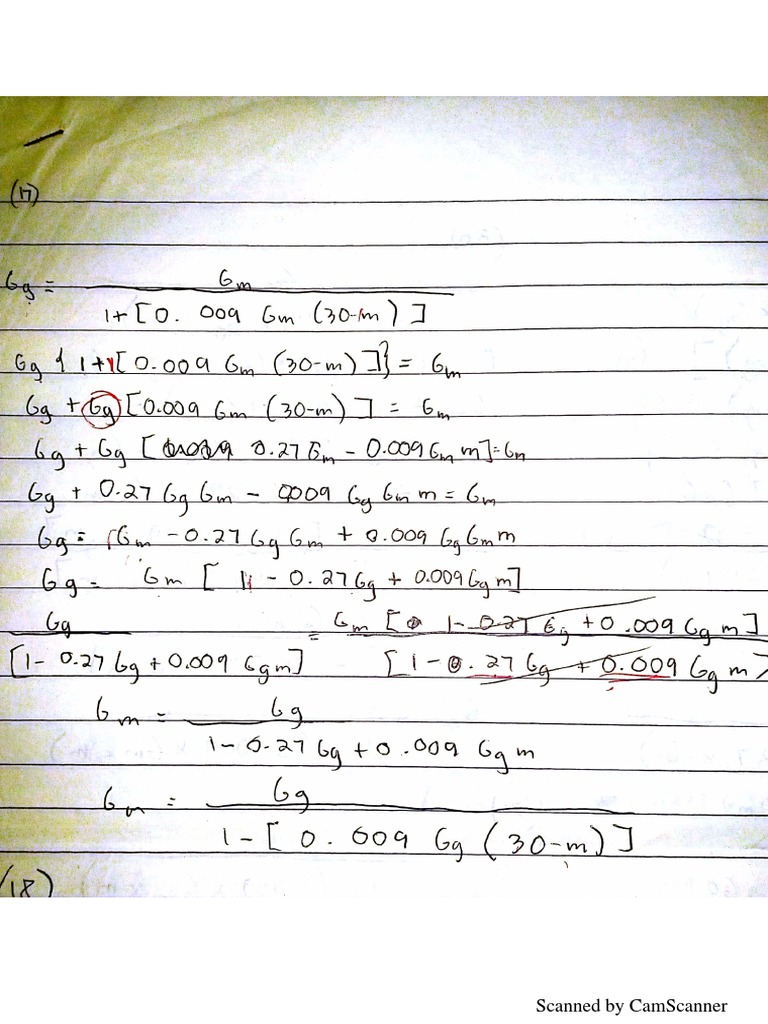 (17)
Gg = Gm
1+[0.009 Gm (30-m)]
Gg { 1+[0.009 Gm (30-m)]} = Gm
Gg + Gg [0.009 Gm (30-m)] = Gm
Gg + Gg [ 0.27 Gm - 0.009 Gm m]=Gm
Gg + 0.27 Gg Gm - 0009 Gg Gm m = Gm
Gg = Gm - 0.27 Gg Gm + 0.009 Gg Gm m
Gg = Gm [ 1 - 0.27 Gg + 0.009 Gg m]
Gg = Gm [ 1 - 0.27 Gg + 0.009 Gg m]
[1- 0.27 Gg + 0.009 Gg m] [1 - 0.27 Gg + 0.009 Gg m]
Gm = Gg
1- 0.27 Gg + 0.009 Gg m
Gm = Gg
1-[0.009 Gg (30-m)]
(18)
Scanned by CamScanner